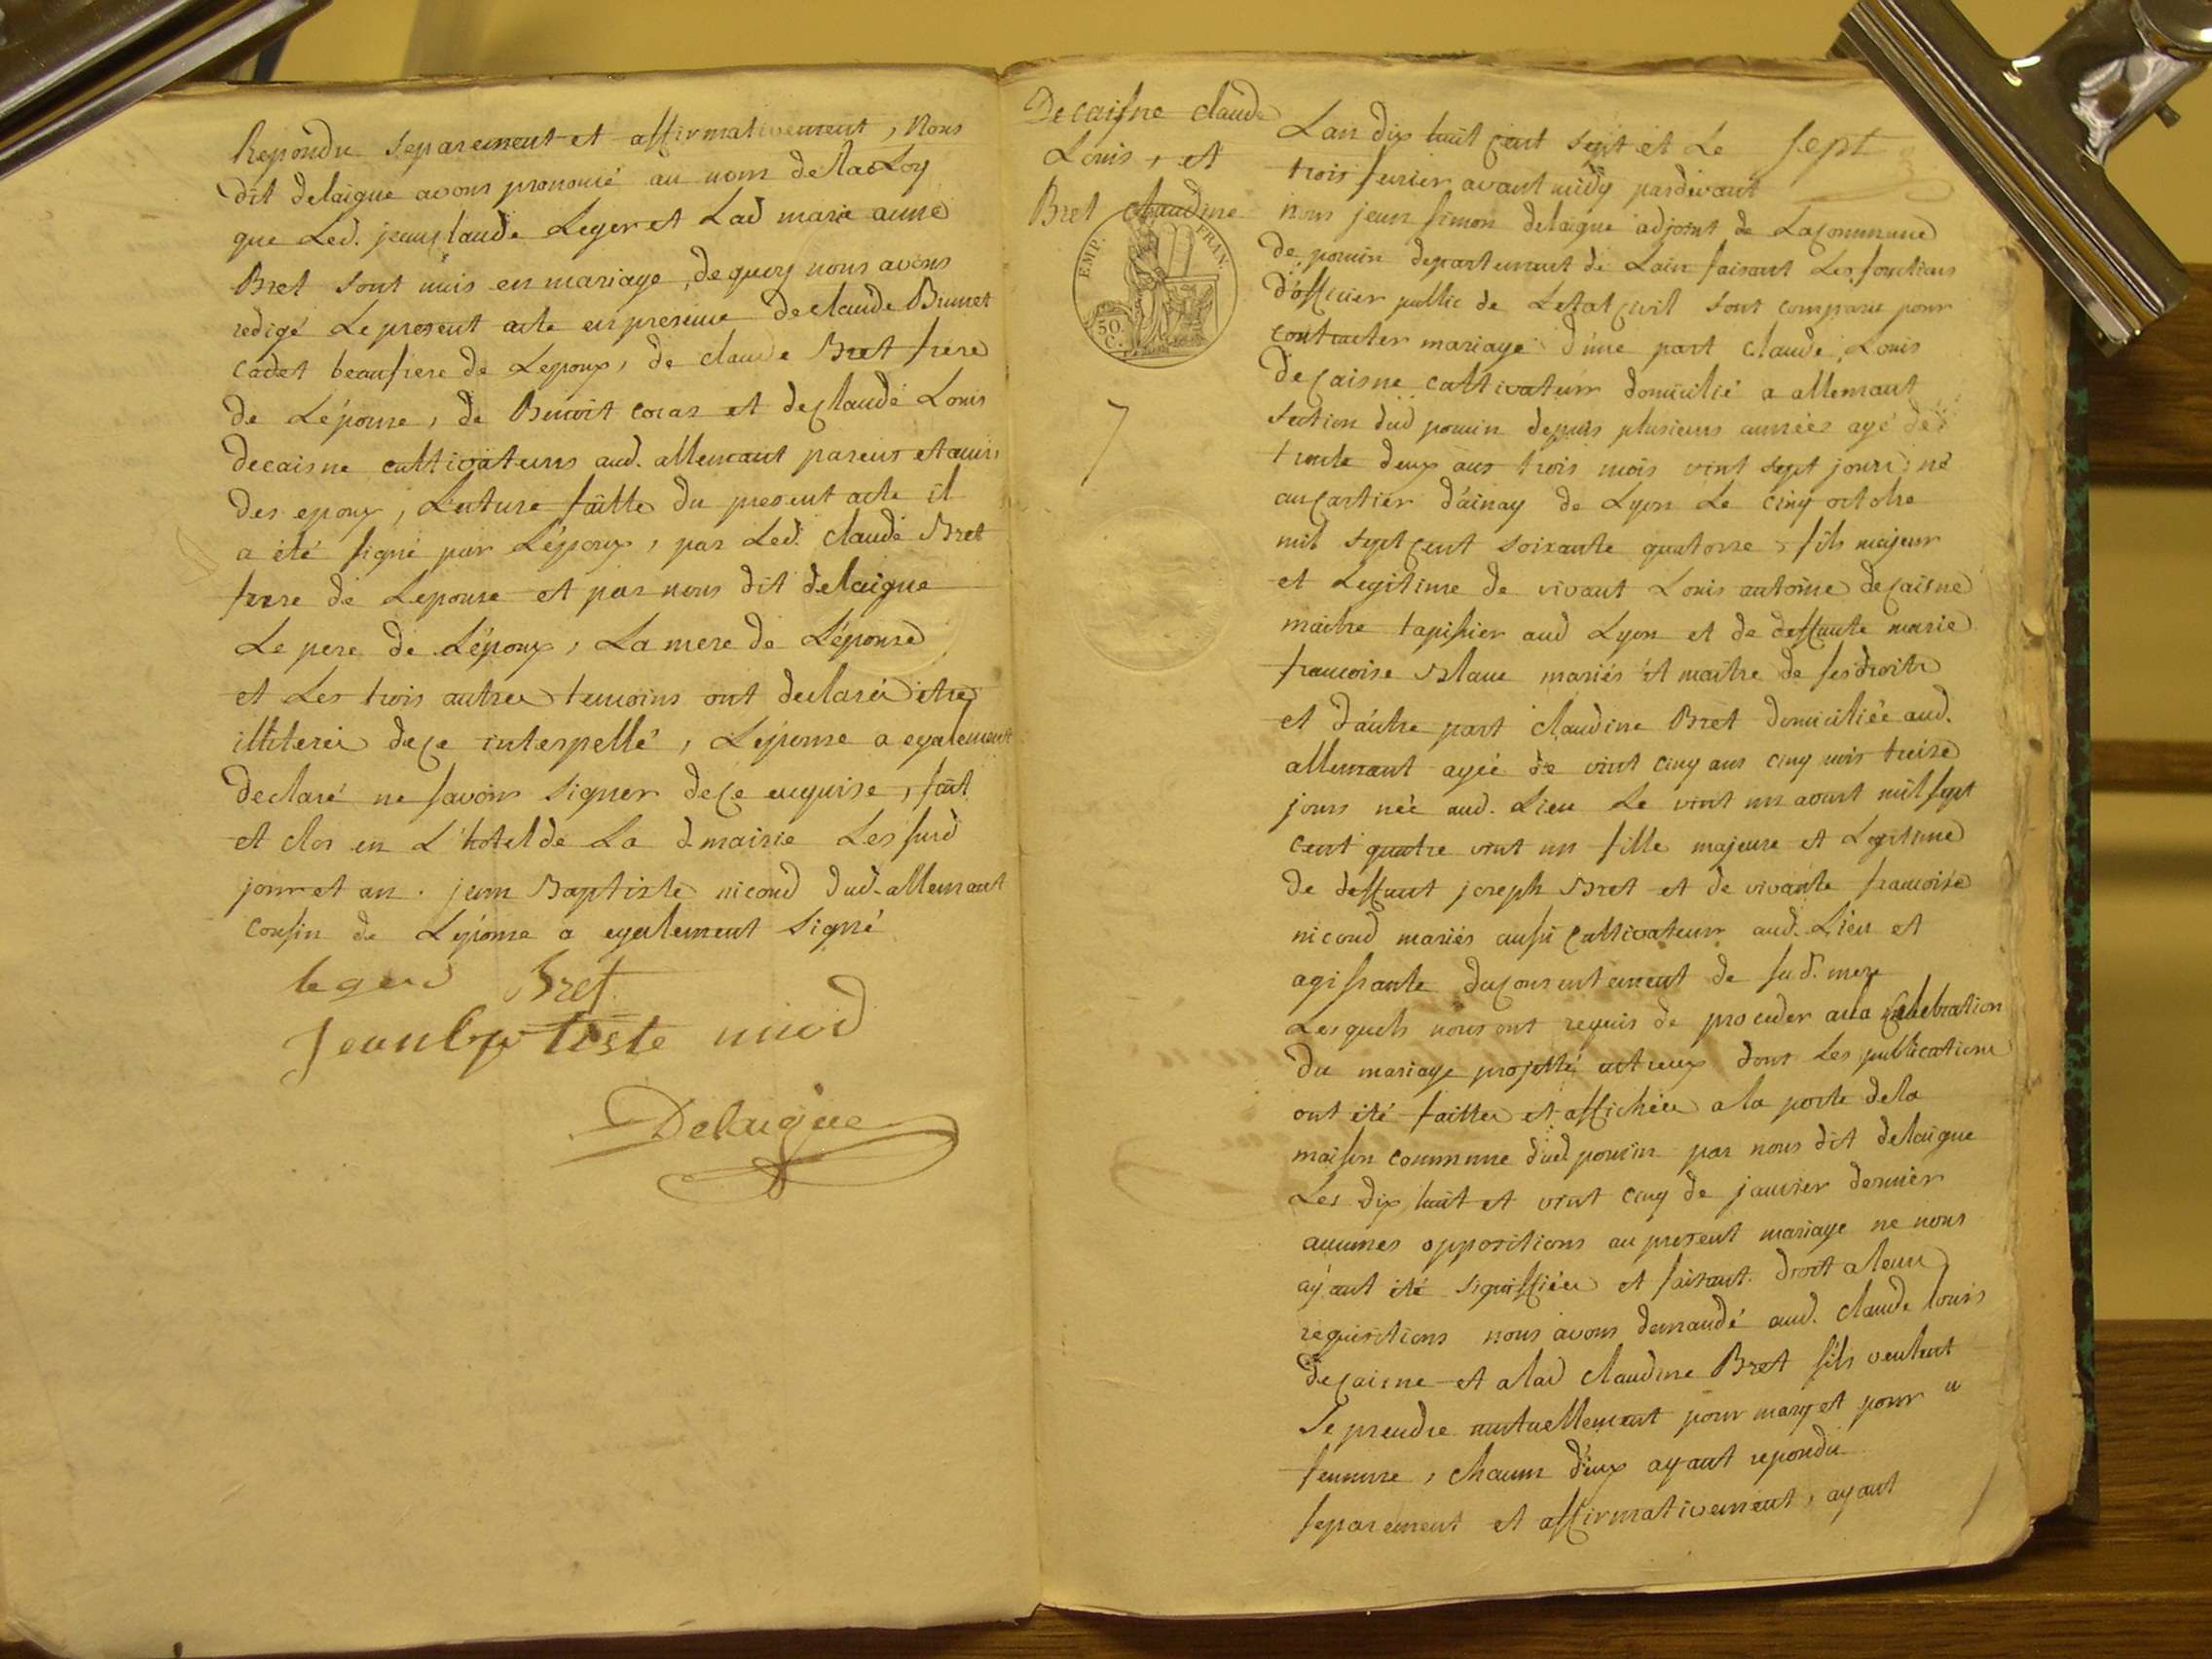 Repondu separement et affirmativement, Nous
dit delaigue avons prononcé au nom de la Loy
que Led. jean claude Leger et Lad marie anne
Bret sont unis en mariage, de quoy nous avons
redigé Le present acte en presence de claude Brunet
cadet beaufrere de Lepoux, de claude Bret frere
de Lépouse, de Benoit coras et de claude Louis
decaisne cultivateurs aud. allemant parens et amis
des epoux, Lecture faitte du present acte il
a été signé par Lépoux, par Led. claude Bret
frere de Lepouse et par nous dit delaigue
Le pere de Lépoux, La mere de Lépouse
et Les trois autres temoins ont declarés etre
illiterés de ce interpellé, Lépouse a egalement
declaré ne savoir signer de ce enquise, fait
et clos en L'hotel de La d mairie Les susd
jour et an. jean Baptiste nicoud dud. allemant
cousin de Lépouse a egalement signé
leger Bret
Jean baptiste nicod
Delaigue
Decaisne claude
Louis, et
Bret claudine
EMP. FRAN.
50. C.
7
Lan dix huit cent sept et Le sept
trois fevrier avant midy pardevant
nous jean simon delaigue adjoint de La commune
de poncin departement de Lain faisant Les fonctions
d'officier public de Letat civil sont comparu pour
contracter mariage d'une part claude Louis
decaisne cultivateur domicilié a allemant
section dud poncin depuis plusieurs années agé de
trente deux ans trois mois vint sept jours, né
au cartier d'ainay de Lyon Le cinq octobre
mil sept cent soixante quatorse, fils majeur
et Legitime de vivant Louis antoine decaisne
maitre tapissier aud Lyon et de deffunte marie
francoise Blanc mariés et maitre de ses droits
et d'autre part claudine Bret domiciliée aud.
allemant agée de vint cinq ans cinq mois treise
jours née aud. Lieu Le vint un aoust mil sept
cent quatre vint un fille majeure et Legitime
de deffunt joseph Bret et de vivante francoise
nicoud mariés aussi cultivateurs aud. Lieu et
agissante du consentement de sad. mere
Lesquels nous ont requis de proceder a la Celebration
du mariage projetté entreux dont Les publications
ont été faittes et affichées a la porte de la
maison commune dud poncin par nous dit delaigue
Les dix huit et vint cinq de janvier dernier
aucunes oppositions au present mariage ne nous
ayant été signiffiées et faisant droit a leurs
requisitions nous avons demandé aud. claude louis
decaisne et a lad claudine Bret sils veulent
se prendre mutuellement pour mary et pour
femme, chacun d'eux ayant repondu
separement et affirmativement, ayant